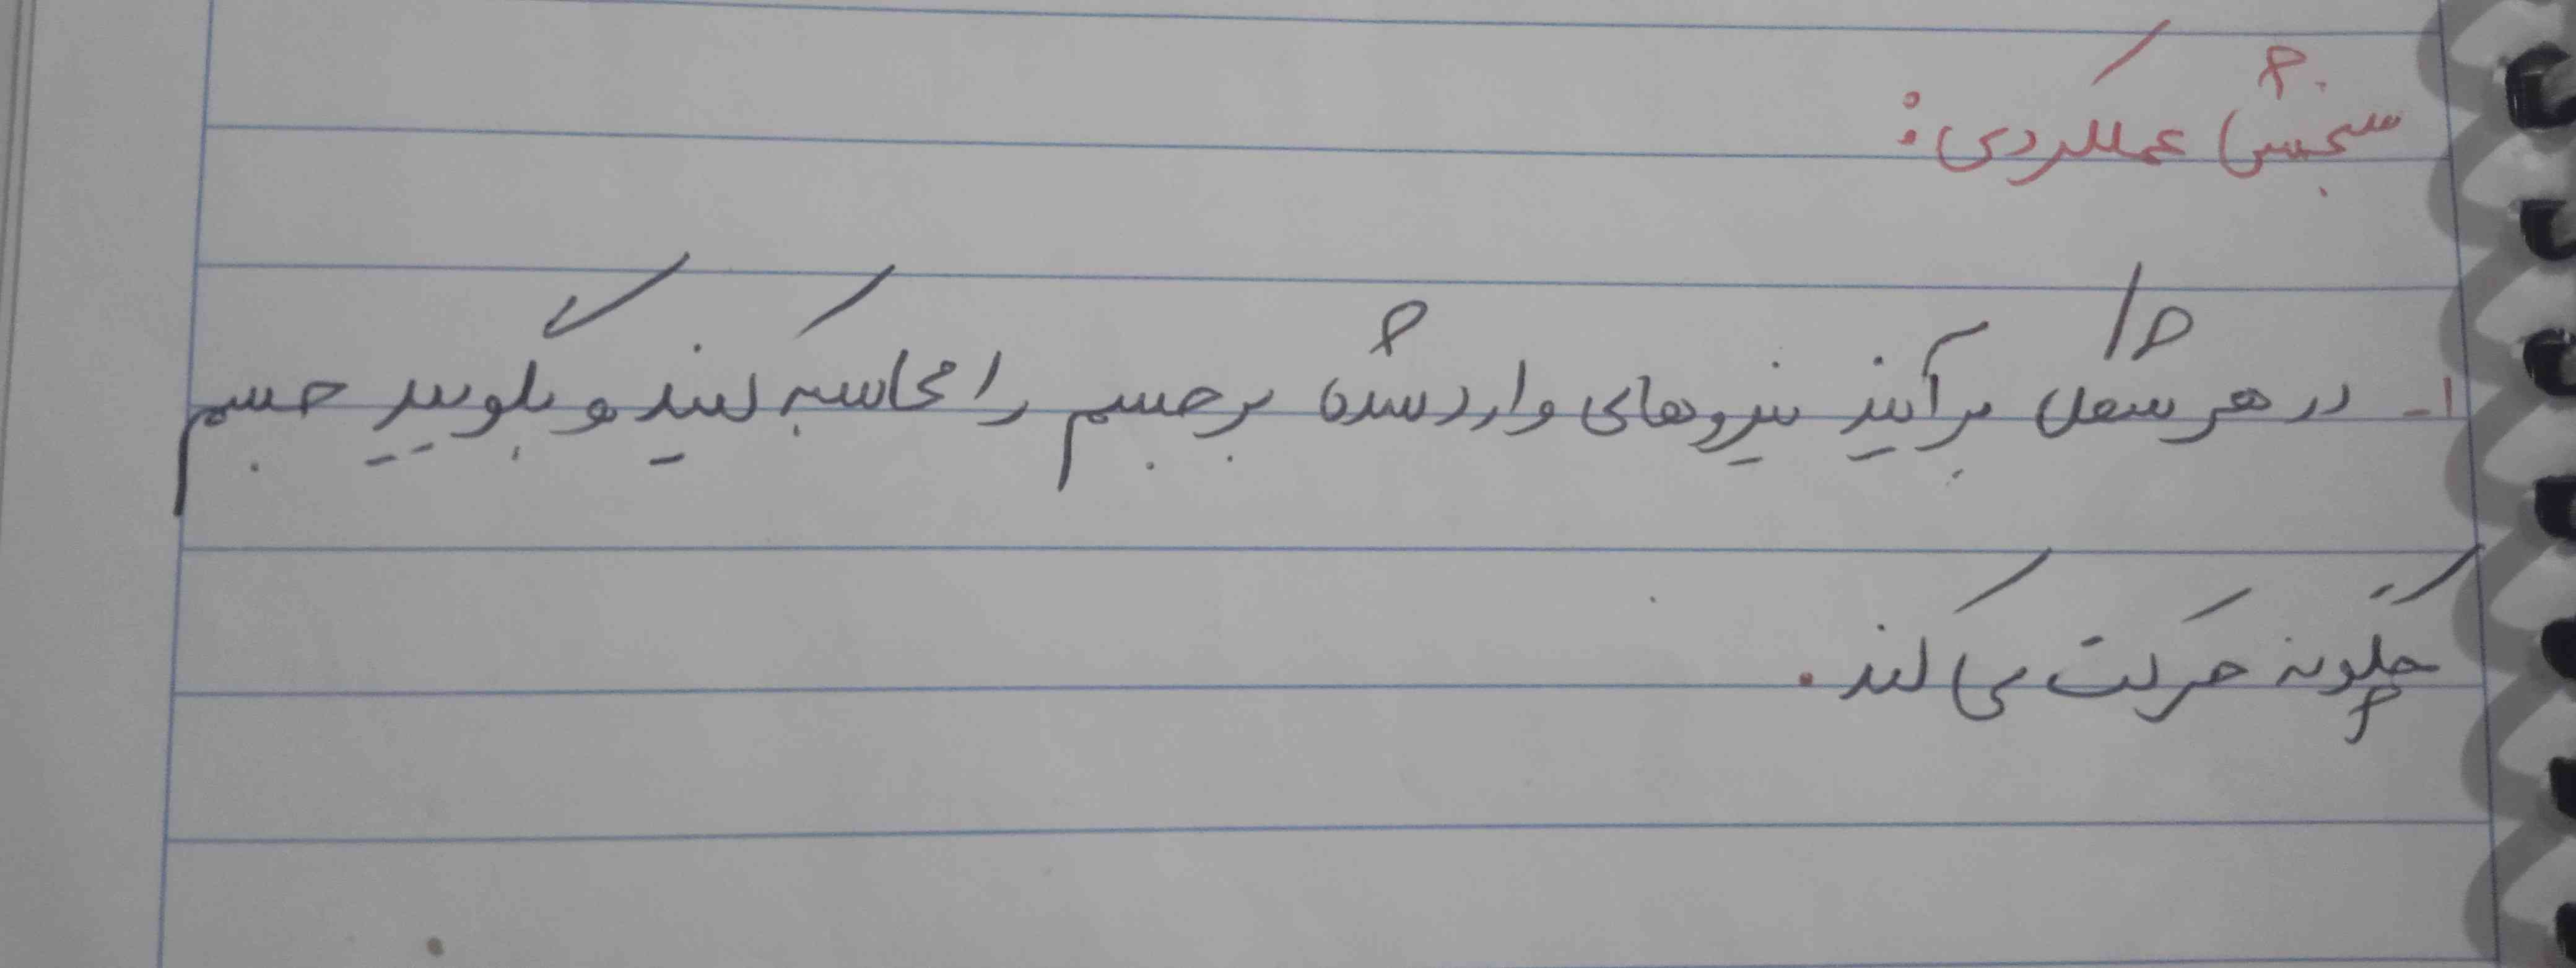 سنجش عملکردی:
۱- در هر شکل برآیند نیروهای وارد شده بر جسم را محاسبه کنید و بگویید جسم
چگونه حرکت می کند.